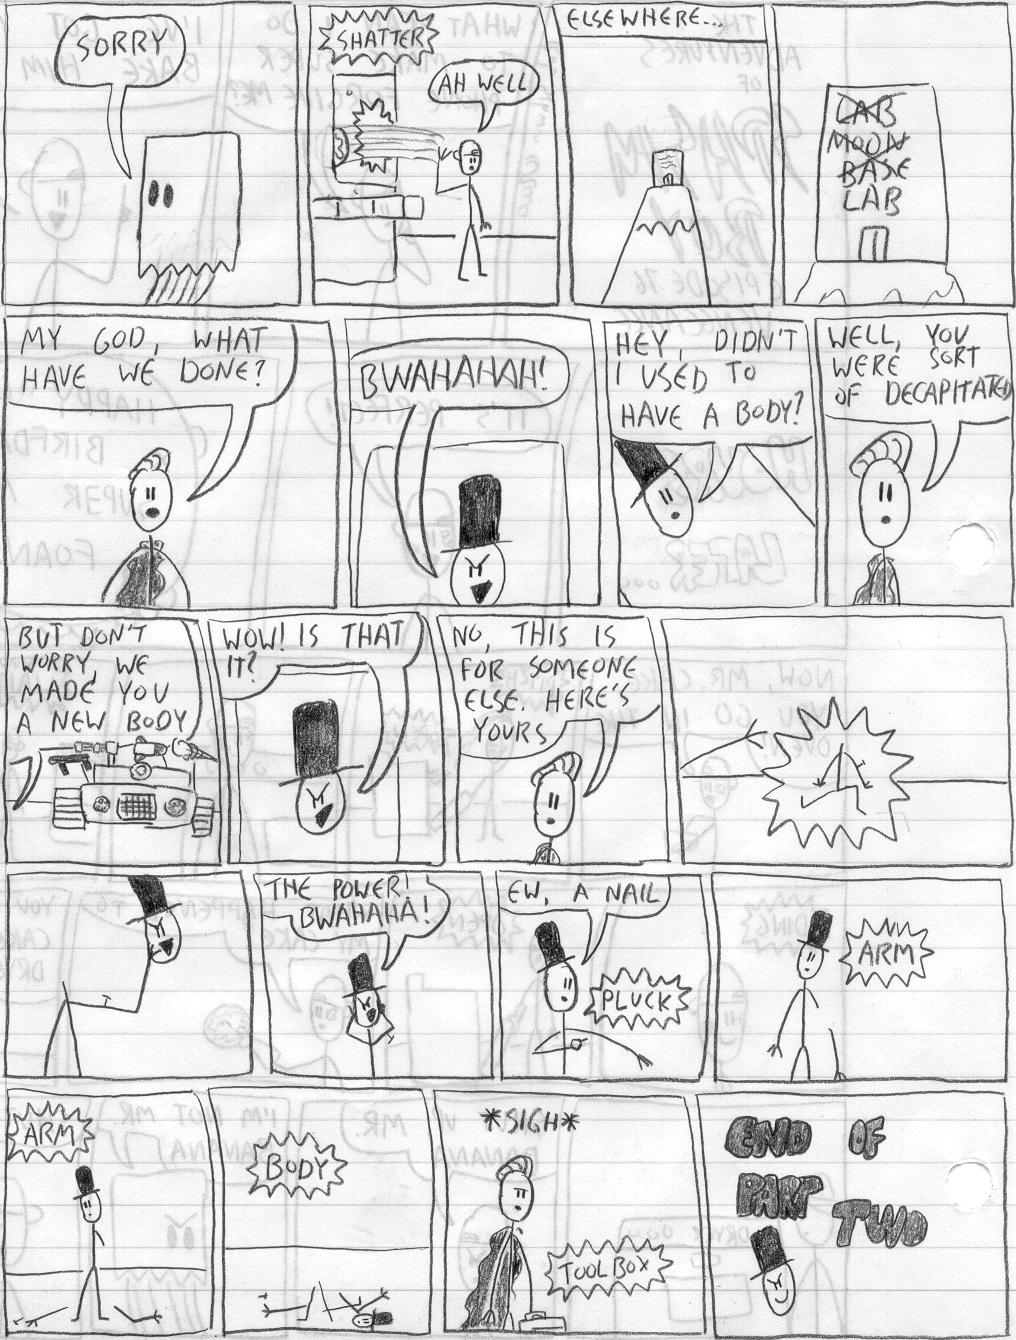 SORRY
SHATTER
AH WELL
ELSEWHERE...
LAB
MOON
BASE
LAB
MY GOD, WHAT
HAVE WE DONE?
BWAHAHAH!
HEY, DIDN'T
I USED TO
HAVE A BODY?
WELL, YOU
WERE SORT
OF DECAPITATED
BUT DON'T
WORRY, WE
MADE YOU
A NEW BODY
WOW! IS THAT
IT?
NO, THIS IS
FOR SOMEONE
ELSE. HERE'S
YOURS
THE POWER!
BWAHAHA!
EW, A NAIL
PLUCK
ARM
ARM
BODY
*SIGH*
TOOLBOX
END OF
PART TWO